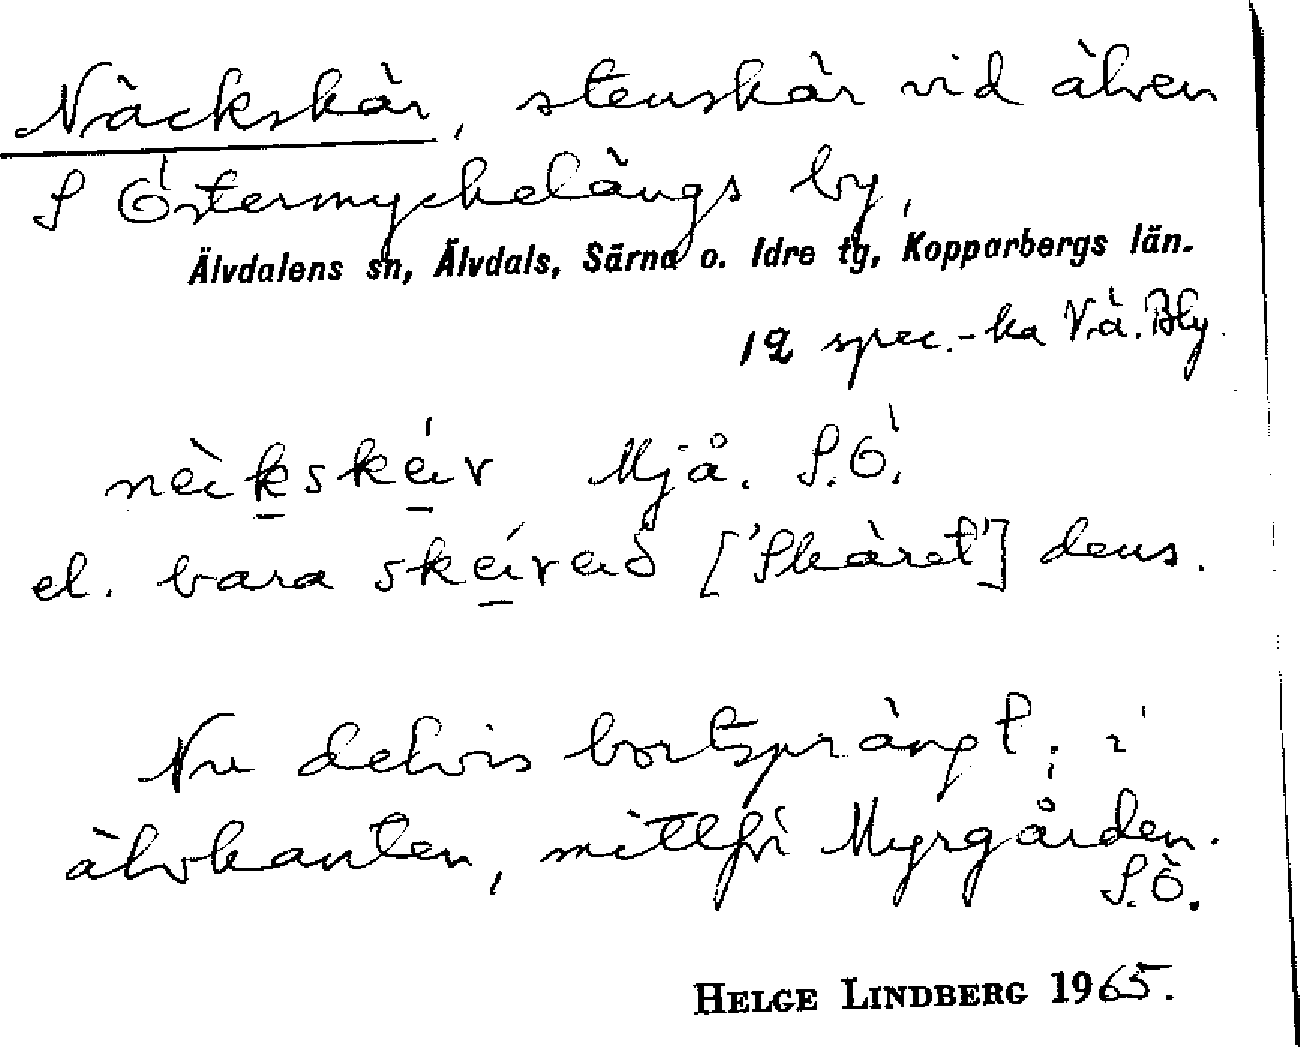 Näckskär, stenskär vid älven
S Östermyckelängs by,
Älvdalens sn, Älvdals, Särna o. Idre tg, Kopparbergs län.
12 spec.-ka Vä. Bly.
Mjå. S.Ö.
el. bara ['Skäret'] dens.
Nu delvis bortsprängt; i
älvkanten, mittför Myrgården.
S.Ö.
HELGE LINDBERG 1965.